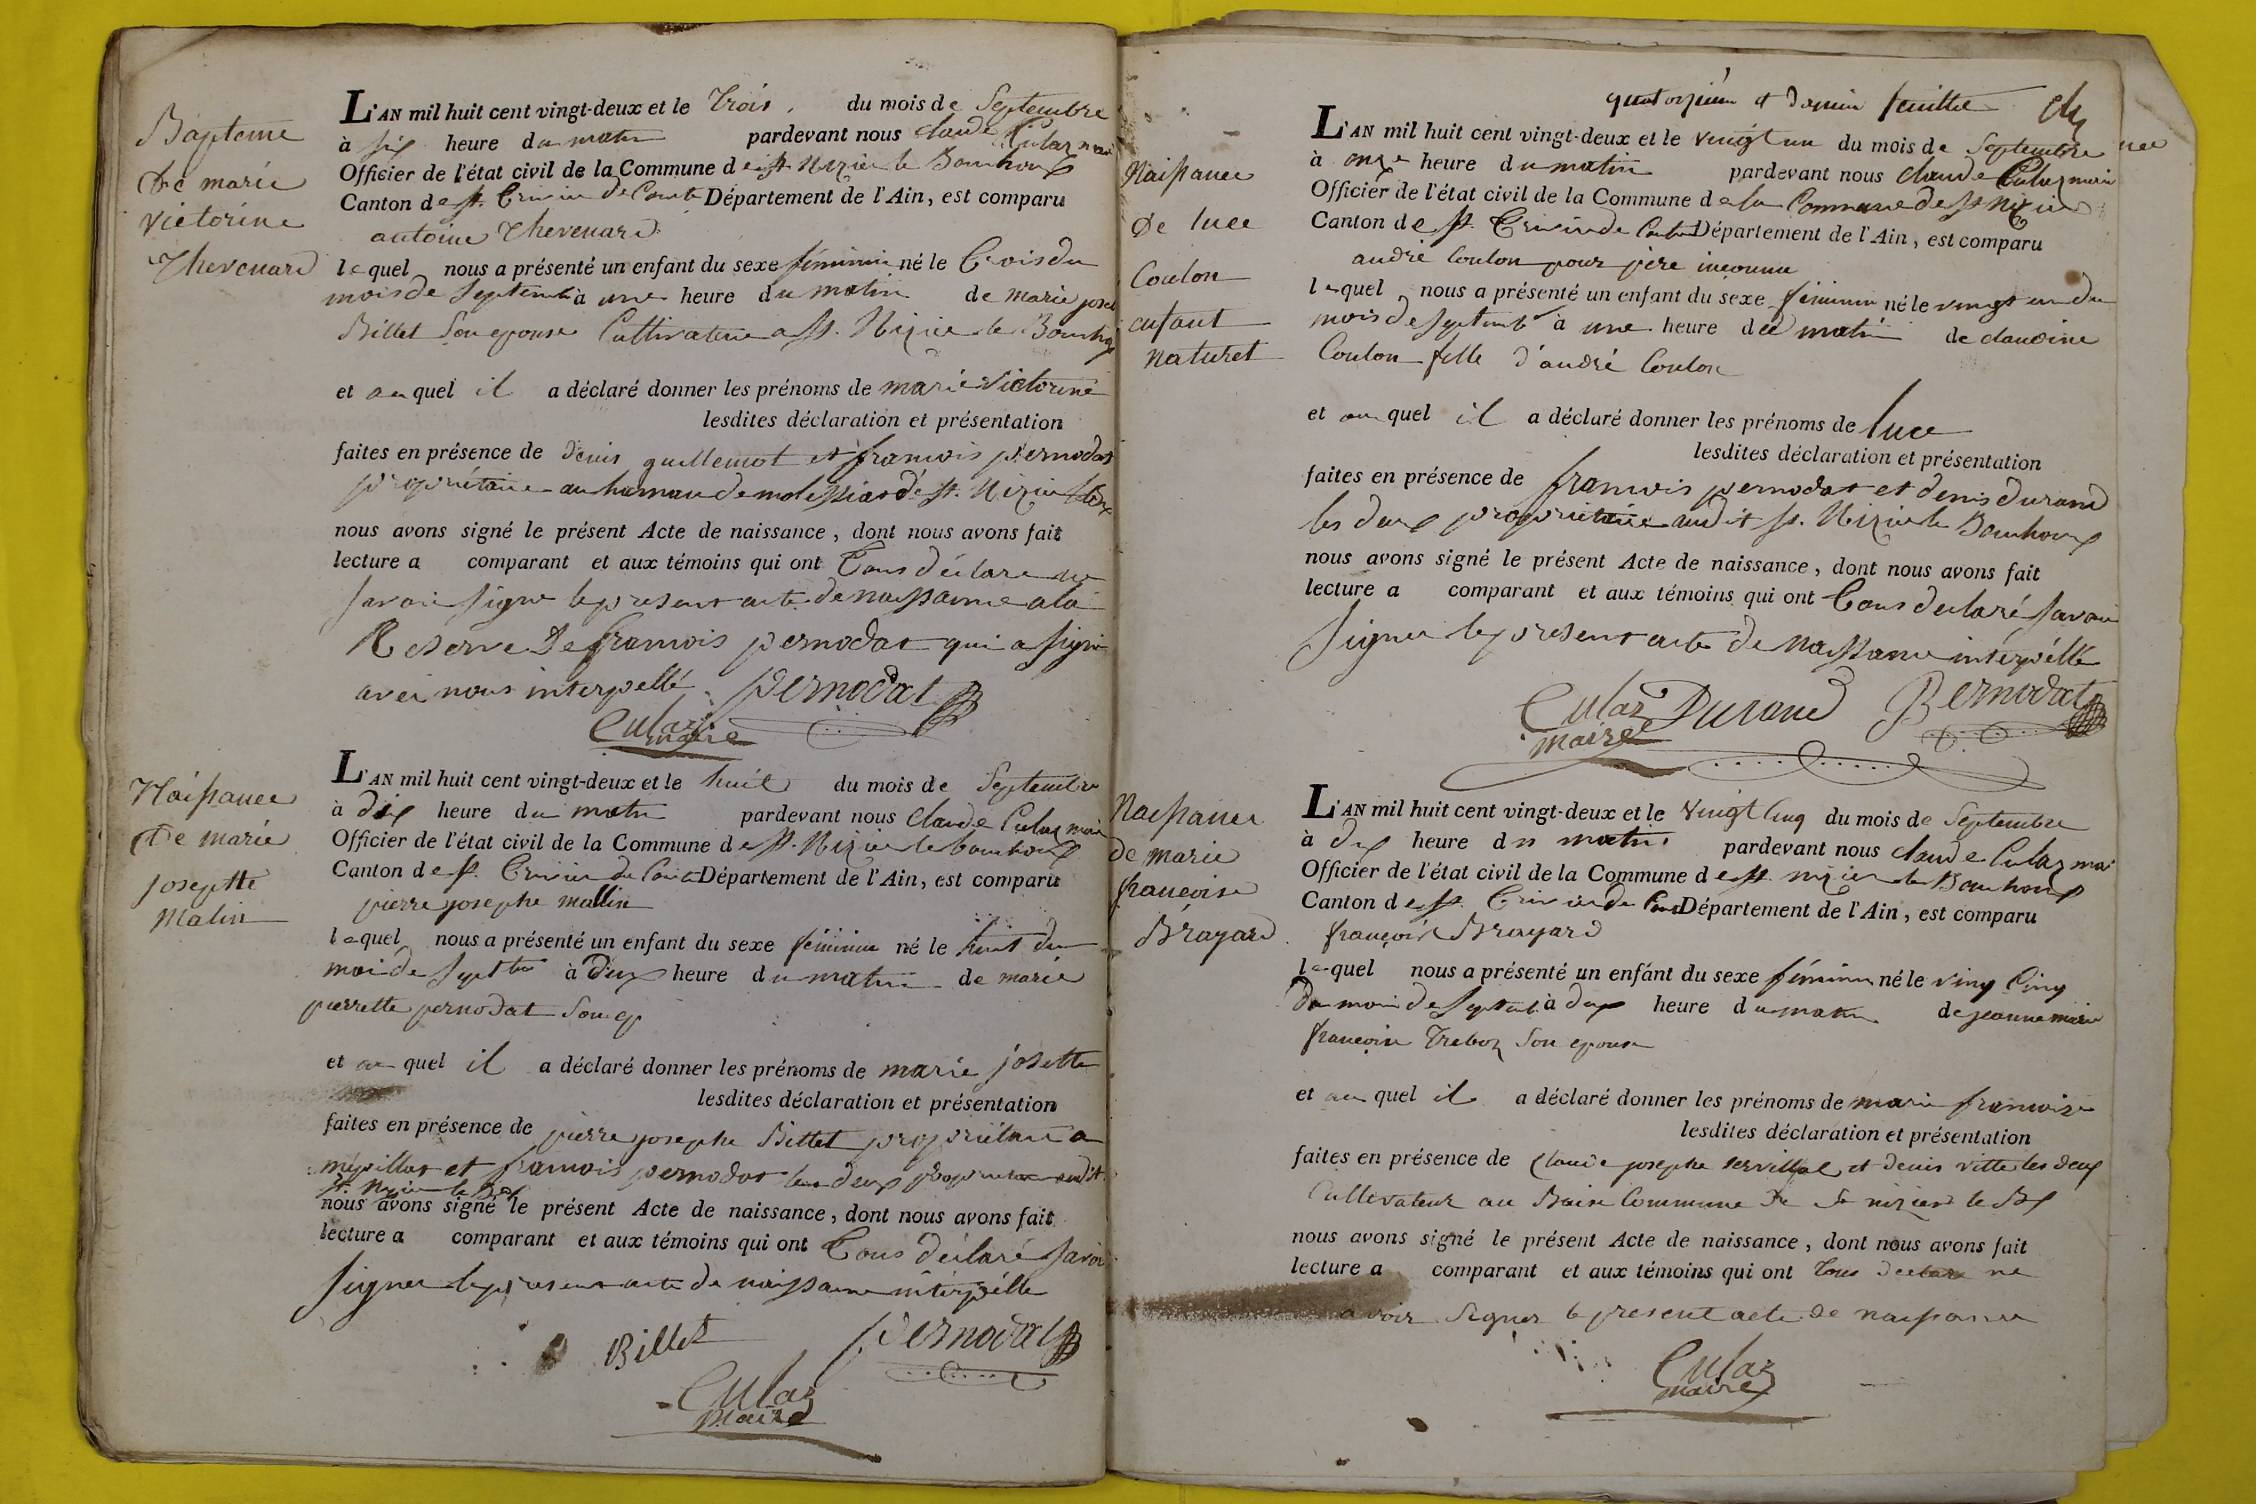 Bapteme
De marie
victorine
Thevenard
L'AN mil huit cent vingt-deux et le Trois du mois de Septembre
à six heure du matin pardevant nous claude Culaz maire
Officier de l'état civil de la Commune de st. Nizier le Bouchoux
Canton de st. Trivier de Courte Département de l'Ain, est comparu
antoine Thevenard
lequel nous a présenté un enfant du sexe féminin né le trois du
mois de Septembre à une heure du matin de marie josep
Billet Son epouse Cultivateur a st. Nizier le Bouchoux
et auquel il a déclaré donner les prénoms de marie victorine
lesdites déclaration et présentation
faites en présence de denis guillemot et francois pernodat
propriétaire au hameau de st. Nizier
nous avons signé le présent Acte de naissance, dont nous avons fait
lecture a comparant et aux témoins qui ont Tous déclare ne
savoir signe le present acte de naissanne a la
Reserve De francois pernodat qui a signé
avec nous interpellé. Pernodat
Culaz
maire
Naissance
De marie
josephte
Malin
L'AN mil huit cent vingt-deux et le huit du mois de Septembre
à dix heure du matin pardevant nous claude Culaz maire
Officier de l'état civil de la Commune de st. Nizier le bouchoux
Canton de st. Trivier de Courte Département de l'Ain, est comparu
pierre josephe mallin
lequel nous a présenté un enfant du sexe féminin né le huit du
moi de Septbre à deux heure du matin de marie
pierrette pernodat Son ep
et auquel il a déclaré donner les prénoms de marie josette
lesdites déclaration et présentation
faites en présence de pierre josephe Billet propriétaire a
mépillat et francois pernodat les deux propriétaire audit
st. Nizier le Bx
nous avons signé le présent Acte de naissance, dont nous avons fait
lecture a comparant et aux témoins qui ont Tous déclaré savoir
signer le present acte de naissanne intérpéllé
Billet Pernodat
Culaz
maire
quatorzième et dernier feuillet
Naissance
De luce
Coulon
enfant
naturel
L'AN mil huit cent vingt-deux et le vingt un du mois de Septembre
à onze heure du matin pardevant nous claude Culaz maire
Officier de l'état civil de la Commune de la Commune de st Nizier
Canton de st. Trivier de Courte Département de l'Ain, est comparu
andré Coulon pour père inconnu
lequel nous a présenté un enfant du sexe féminin né le vingt un du
mois de Septemb à une heure du matin de claudine
Coulon fille d'andré Coulon
et auquel il a déclaré donner les prénoms de luce
lesdites déclaration et présentation
faites en présence de francois pernodat et denis durand
les deux propriétaire audit st. Nizier le Bouchoux
nous avons signé le présent Acte de naissance, dont nous avons fait
lecture a comparant et aux témoins qui ont Tous déclaré savoir
signer le present acte de naissanne intérpéllé
Culaz Durand Pernodat
maire
Naissance
de marie
francoise
Brayard
L'AN mil huit cent vingt-deux et le vingt cinq du mois de Septembre
à dix heure du matin pardevant nous claude Culaz mai
Officier de l'état civil de la Commune de st. nizier le Bouchoux
Canton de st. Trivier de Cour Département de l'Ain, est comparu
françois Brayard
lequel nous a présenté un enfant du sexe féminin né le ving Cinq
Du mois de Septemb à deux heure du matin de jeanne marie
francoise Treboz Son epouse
et auquel il a déclaré donner les prénoms de marie francoise
lesdites déclaration et présentation
faites en présence de Claude josephe servillat et denis vitte les deux
Cultivateur au Commune De St nizier le Bx
nous avons signé le présent Acte de naissance, dont nous avons fait
lecture a comparant et aux témoins qui ont Tous declare ne
avoir Signer le present acte de naissance
Culaz
maire